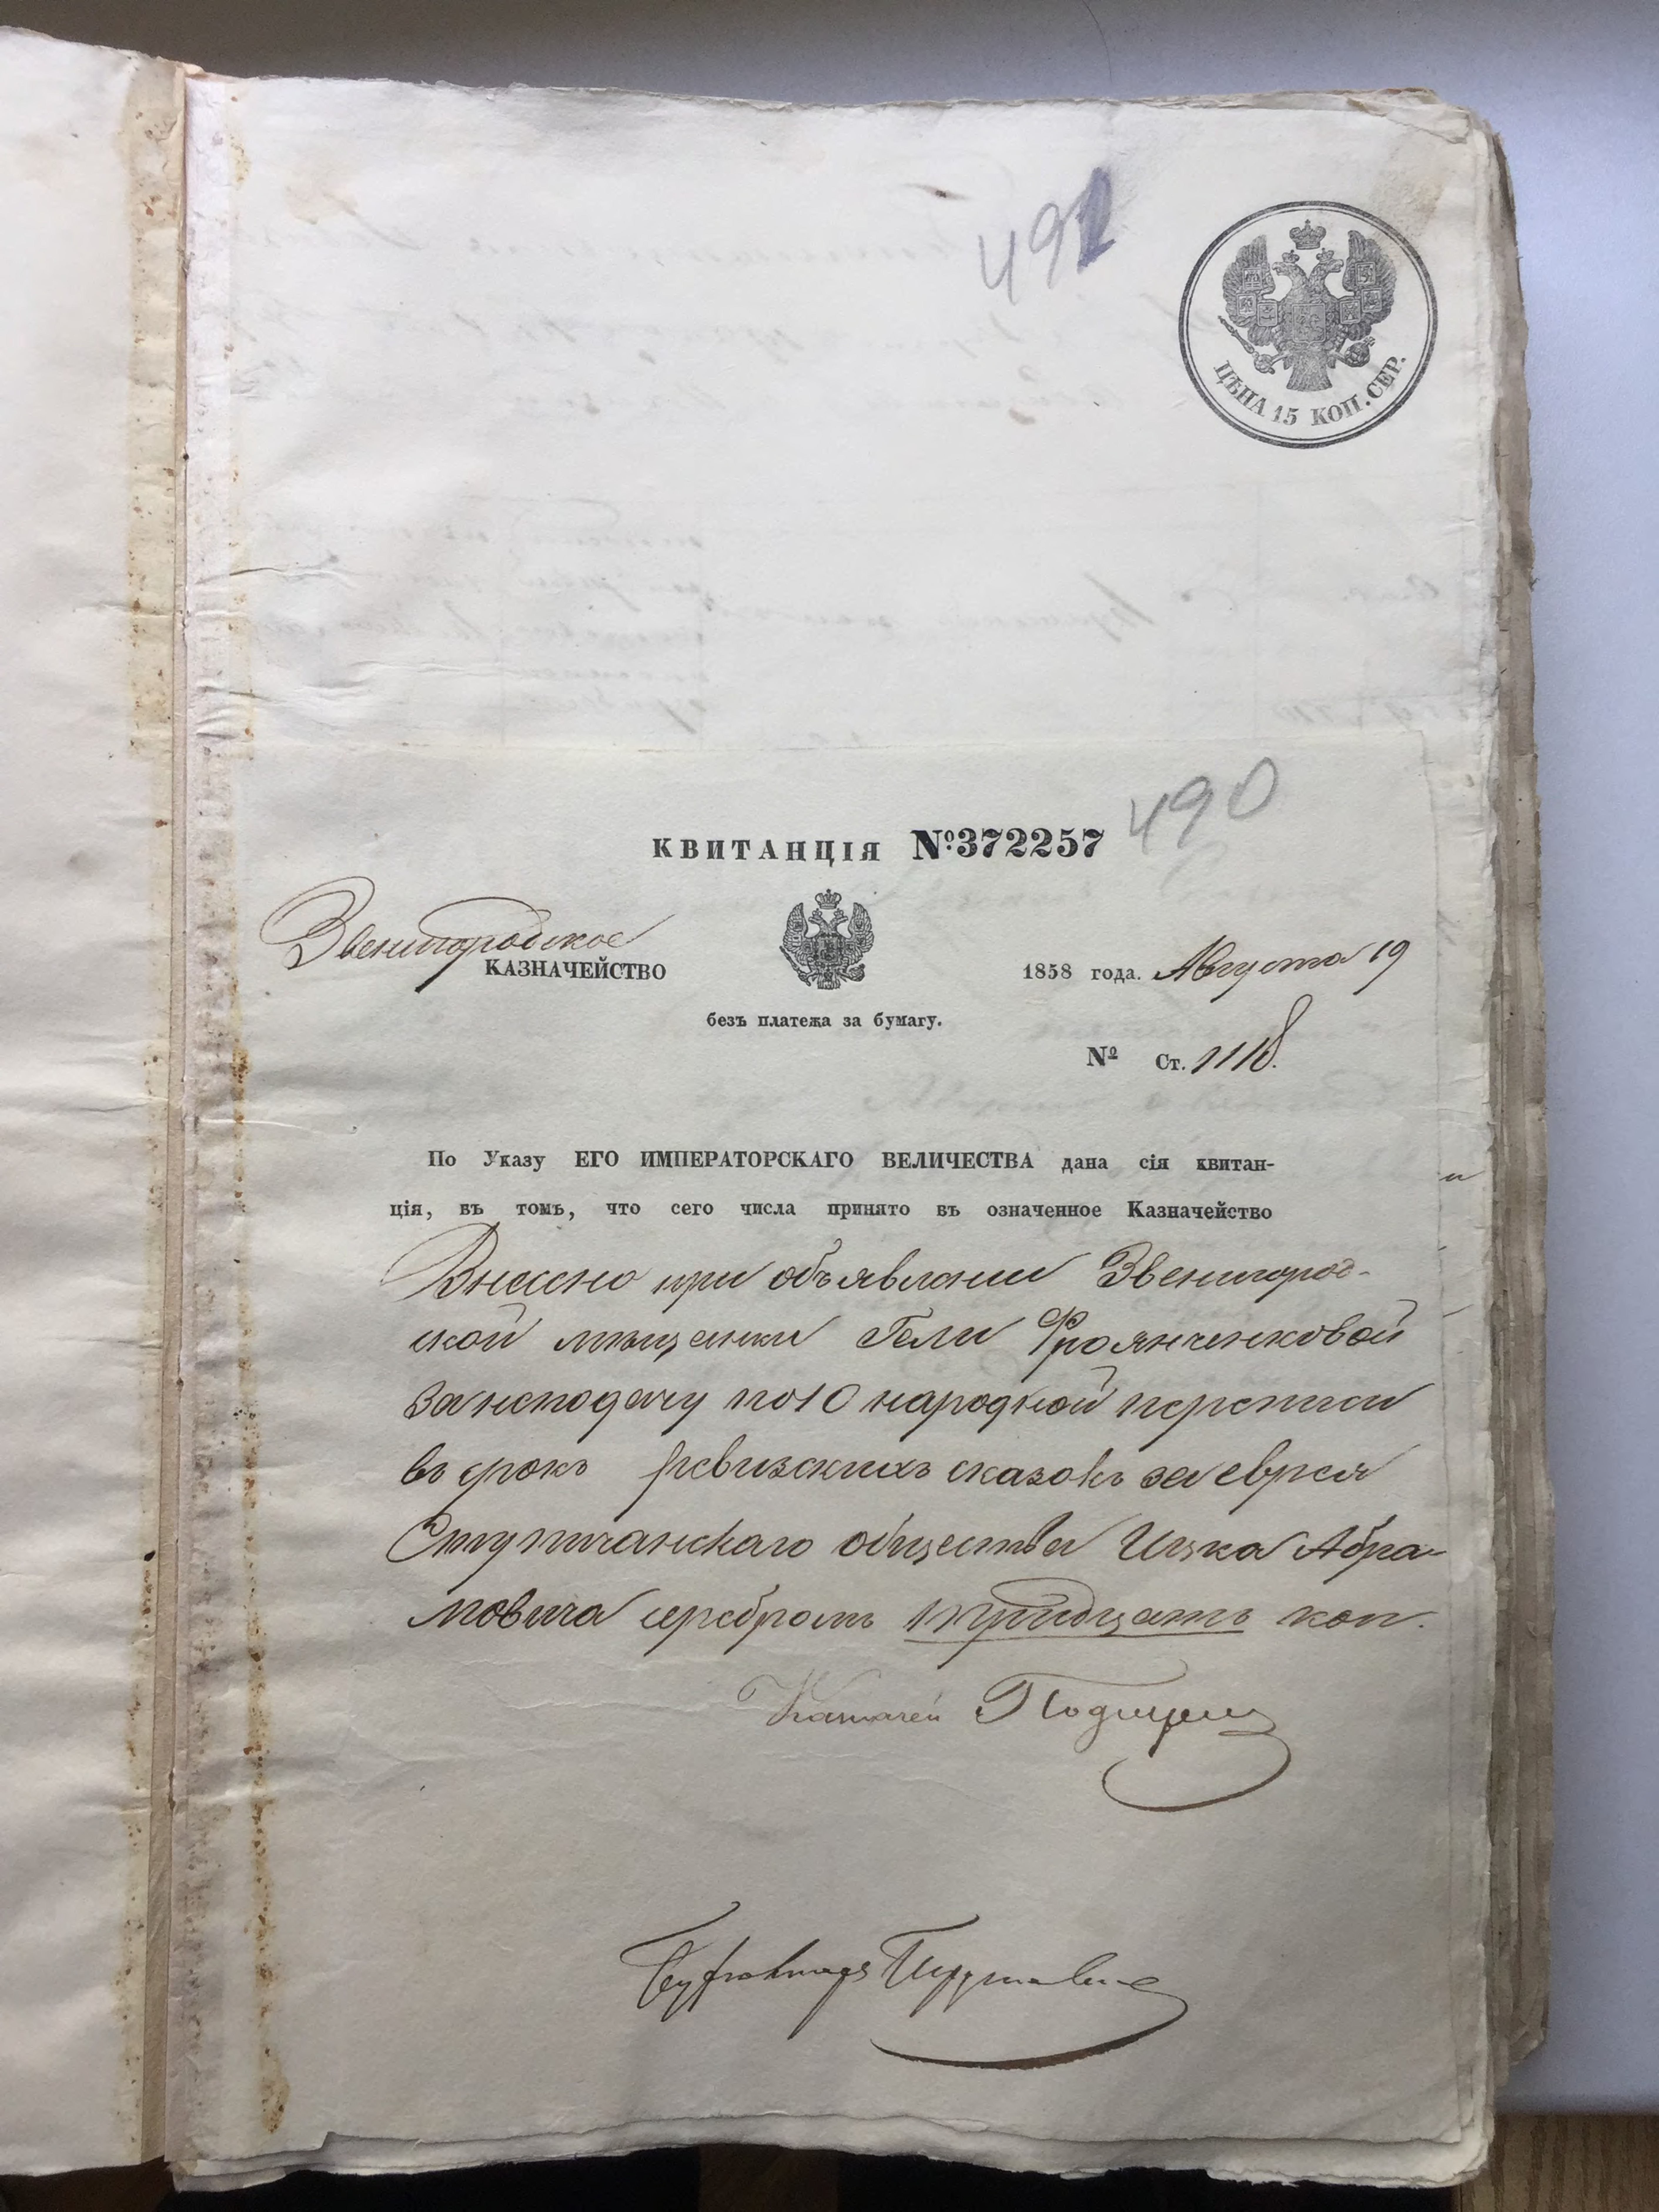 491
ЦѢНА 15 КОП. СЕР.
490
КВИТАНЦІЯ №372257
Звенигородское
КАЗНАЧЕЙСТВО
1858 года. Августа 19
безъ платежа за бумагу.
№ Ст. 1118.
По Указу ЕГО ИМПЕРАТОРСКАГО ВЕЛИЧЕСТВА дана сія квитан-
ція, въ томъ, что сего числа принято въ означенное Казначейство
Внесено при объявлении Звенигород-
ской мѣщанки Гели Фроянченковой
за неподачу по 10 народной переписи
въ срокъ ревизскихъ сказокъ за еврея
общества Ицка Абра-
мовича серебромъ тридцать коп.
Казначей